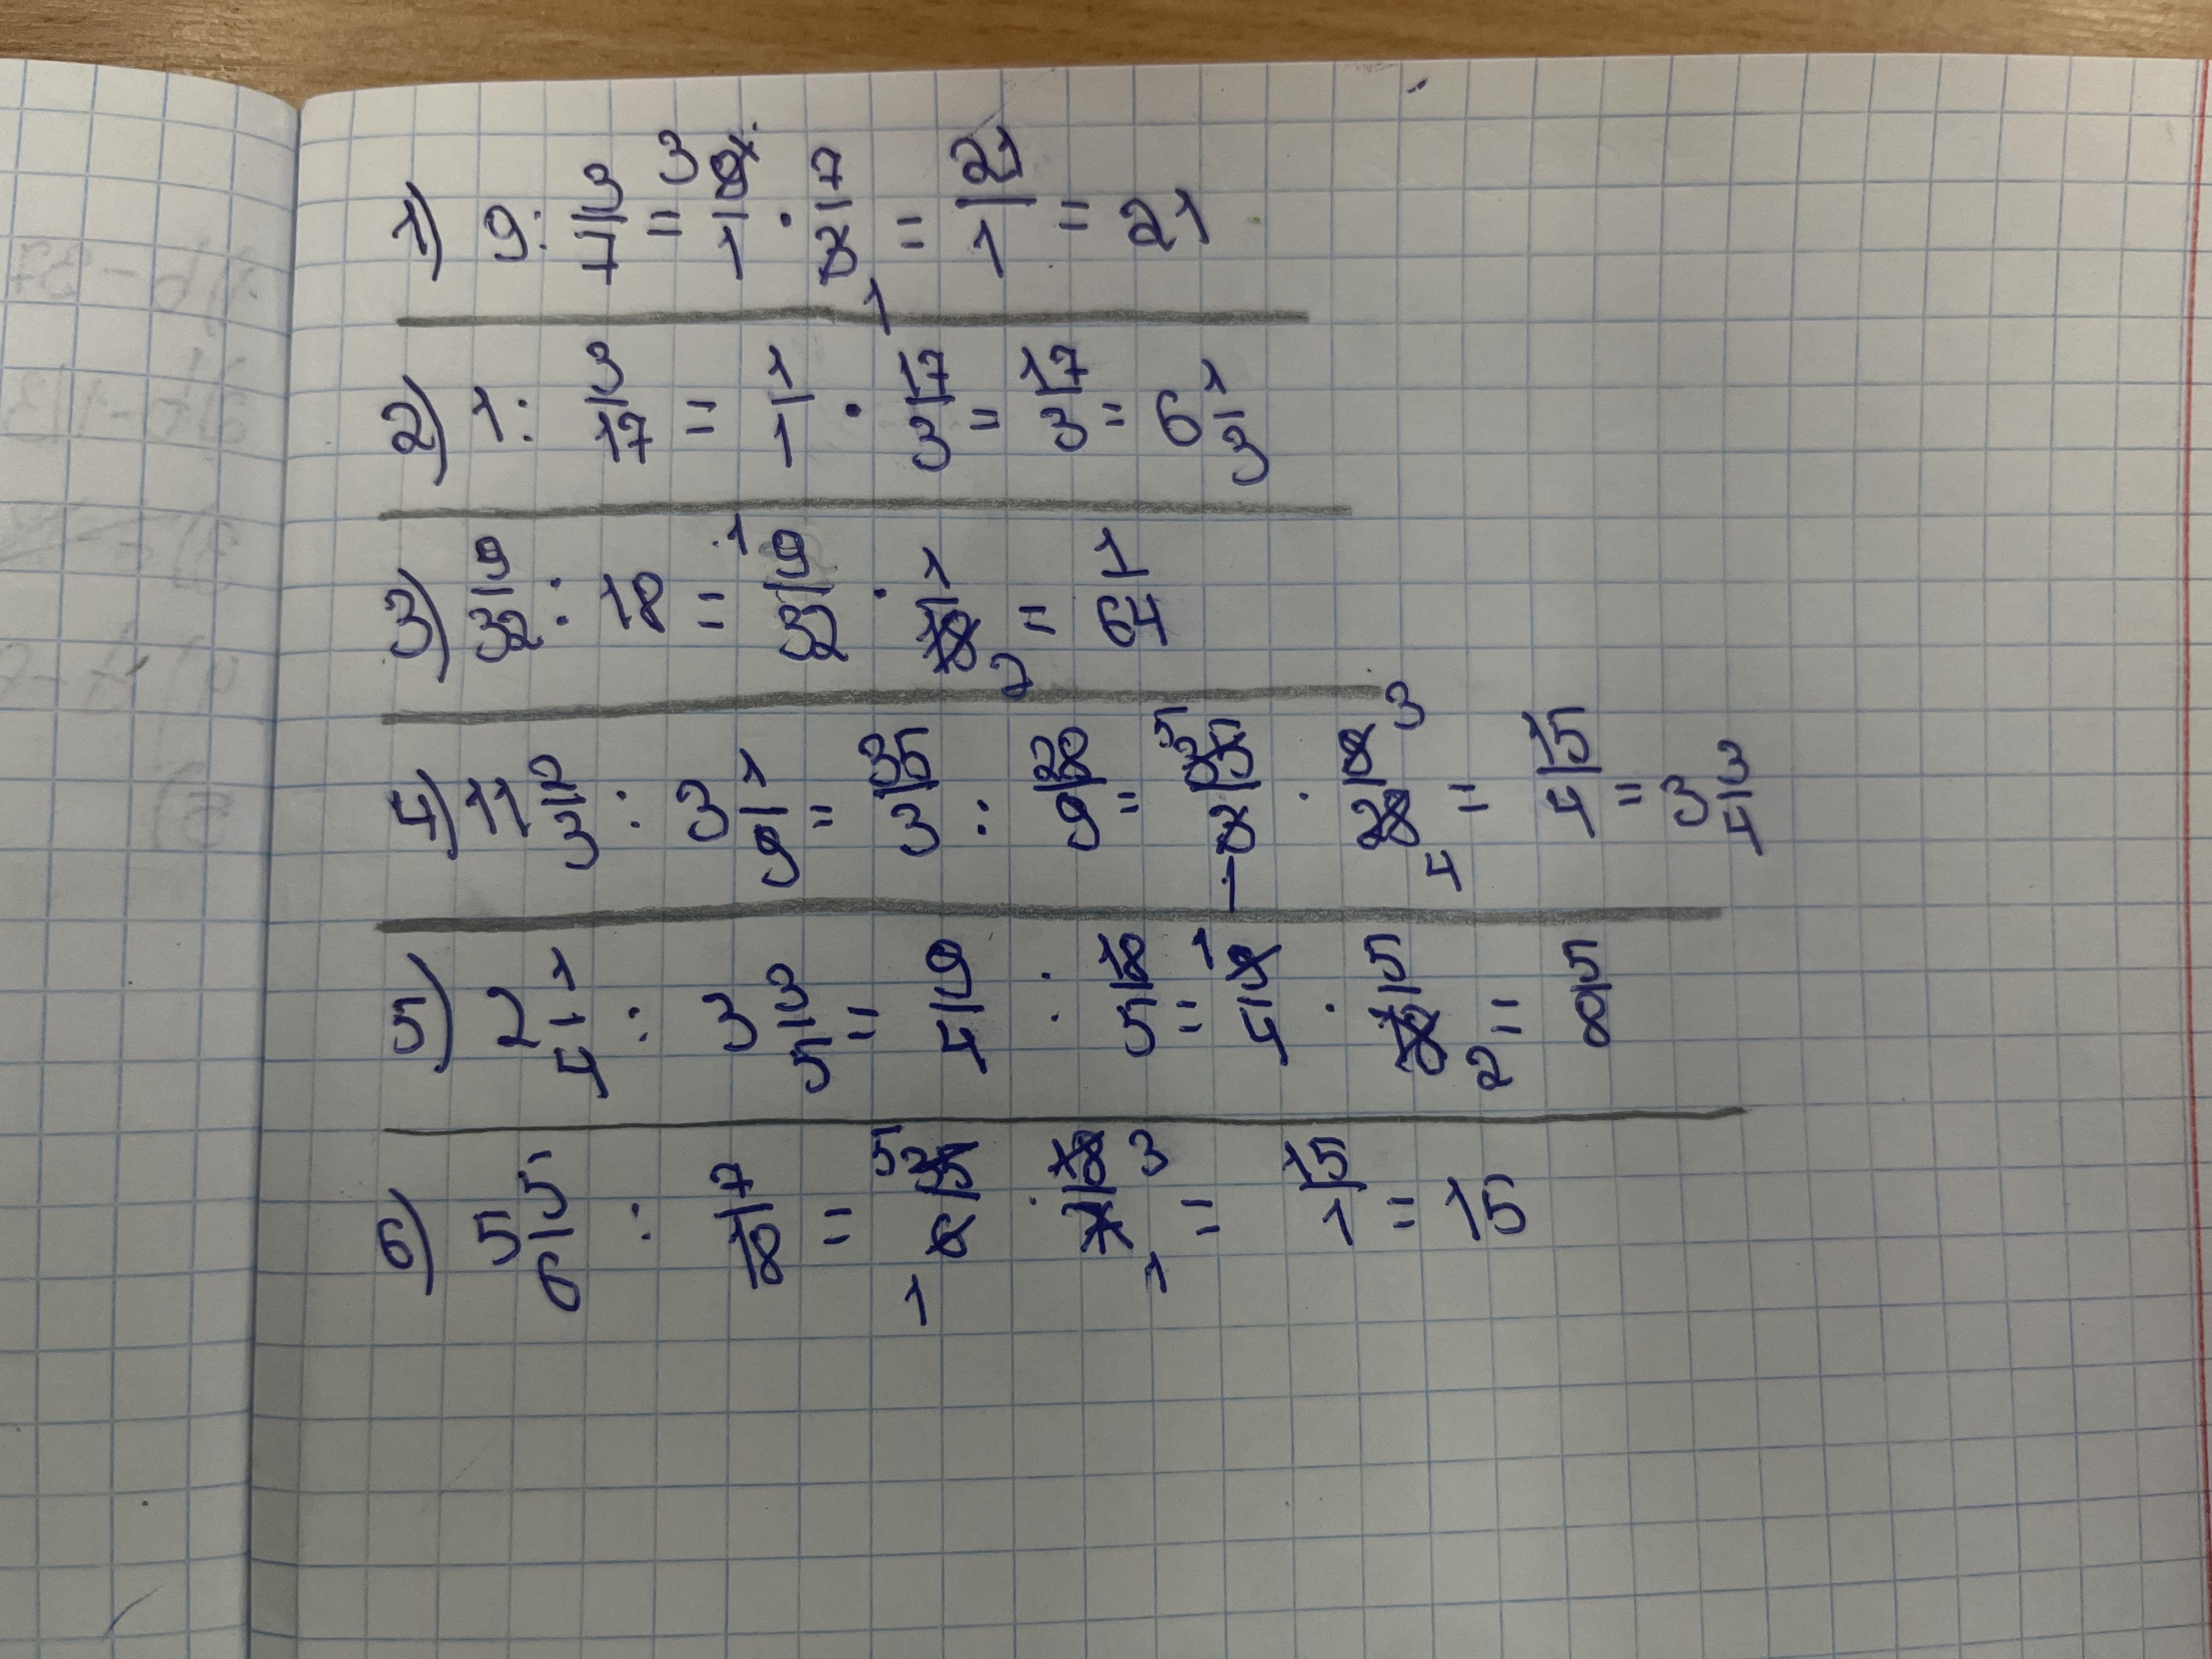 1) 9 : 3/7 = 9/1 · 7/3 = 21/1 = 21
2) 1 : 3/17 = 1/1 · 17/3 = 17/3 = 6 1/3
3) 9/32 : 18 = 9/32 · 1/18 = 1/64
4) 11 2/3 : 3 1/9 = 35/3 : 28/9 = 35/3 · 9/28 = 15/4 = 3 3/4
5) 2 1/4 : 3 3/5 = 9/4 : 18/5 = 9/4 · 5/18 = 5/8
6) 5 5/6 : 7/18 = 35/6 · 18/7 = 15/1 = 15